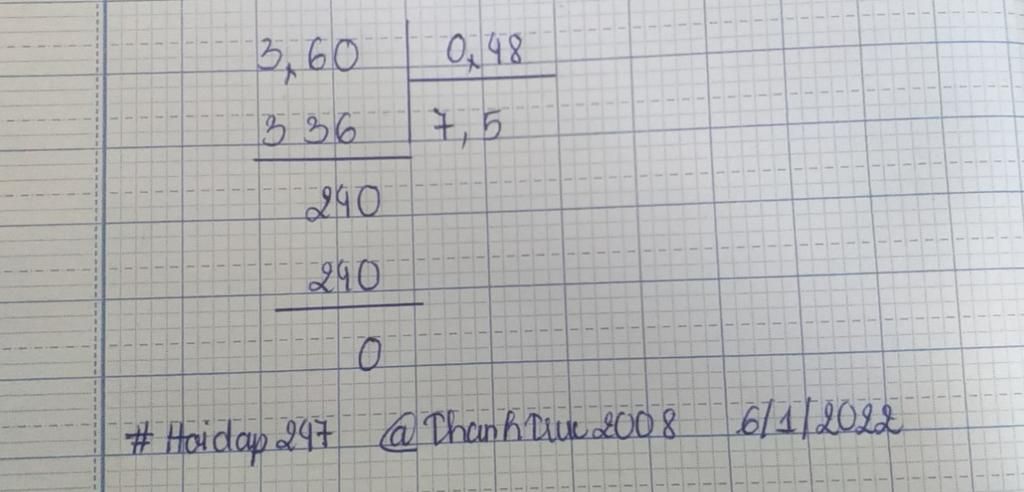 3,60 0,48
336 7,5
240
240
0
#Hoidap247 @ThanhTruc2008 6/1/2022